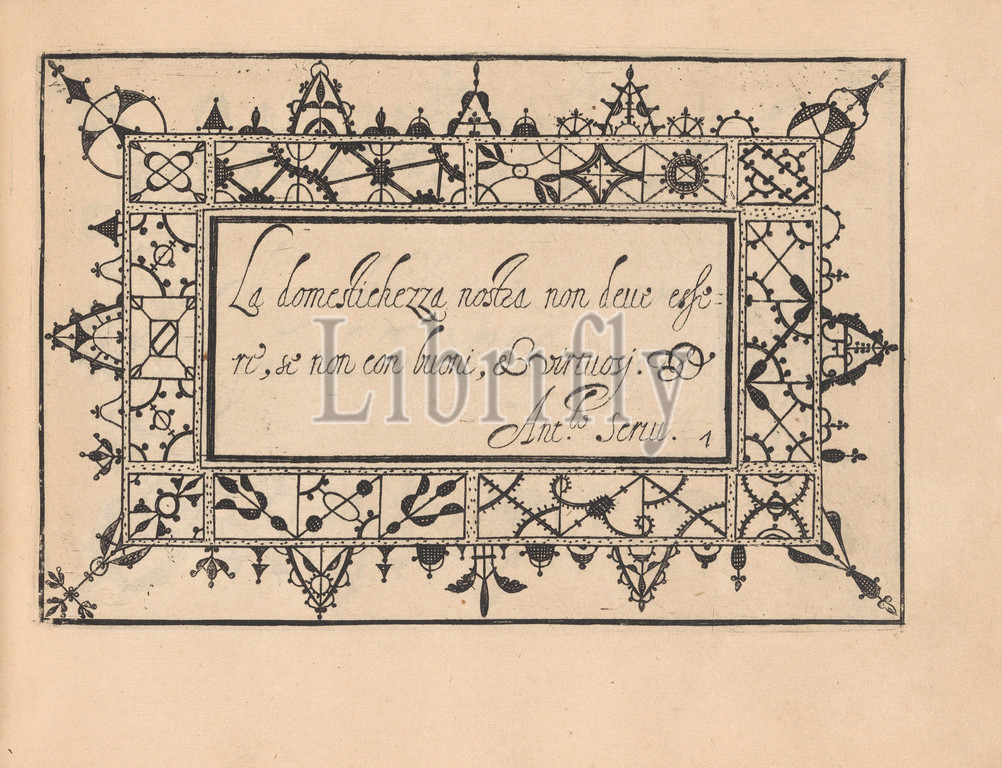 La domestichezza nostra non deue esse=
re, se non con buoni, & virtuosj.
Ant.us Scriu. 1
Librifly